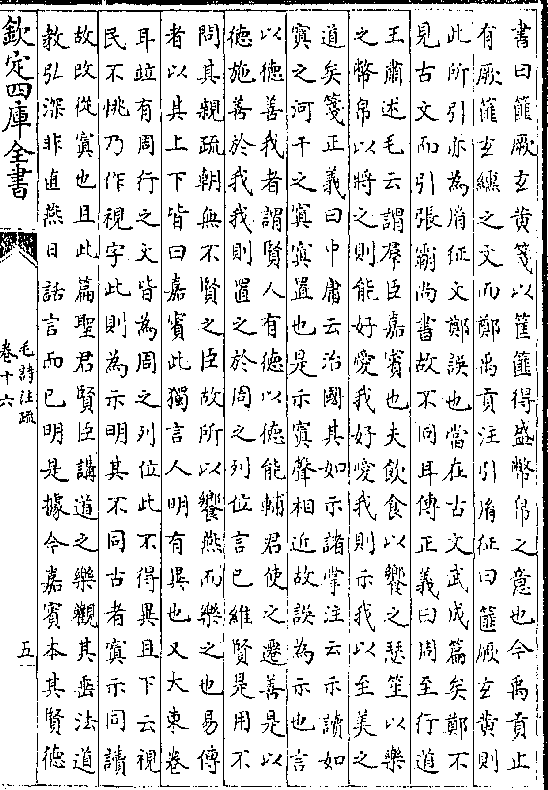 書曰篚厥玄黄箋以筐篚得盛幣帛之意也今禹貢止
有厥篚玄纁之文而鄭禹貢注引胤征曰篚厥玄黄則
此所引亦為胤征文鄭誤也當在古文武成篇矣鄭不
見古文而引張霸尚書故不同耳傳正義曰周至行道
王肅述毛云謂羣臣嘉賓也夫飲食以饗之瑟笙以樂
之幣帛以將之則能好愛我好愛我則示我以至美之
道矣箋正義曰中庸云治國其如示諸掌注云示讀如
寘之河干之寘寘置也是示寘聲相近故誤為示也言
以德善我者謂賢人有德以德能輔君使之遷善是以
德施善於我我則置之於周之列位言已維賢是用不
問其親疏朝無不賢之臣故所以饗燕而樂之也易傳
者以其上下皆曰嘉賓此獨言人明有異也又大東卷
耳竝有周行之文皆為周之列位此不得異且下云視
民不恌乃作視字此則為示明其不同古者寘示同讀
故改從寘也且此篇聖君賢臣講道之樂觀其垂法道
教弘深非直燕日話言而已明是據今嘉賓本其賢德
欽定四庫全書
毛詩注疏
卷十六
五